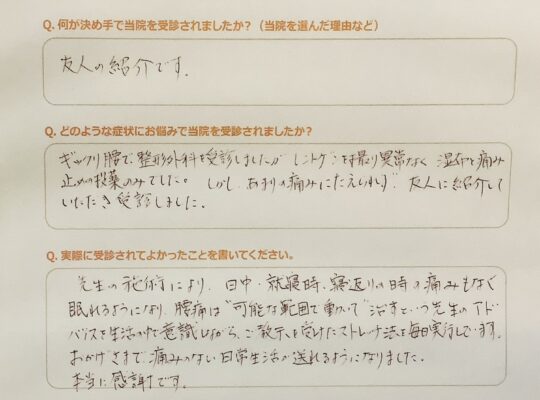 Q. 何が決め手で当院を受診されましたか？（当院を選んだ理由など）
友人の紹介です。
Q. どのような症状にお悩みで当院を受診されましたか？
ギックリ腰で整形外科を受診しましたが レントゲンを撮り異常なく 湿布と痛み
止めの投薬のみでした。 しかし、あまりの痛みにたえられず、友人に紹介して
いただき受診しました。
Q. 実際に受診されてよかったことを書いてください。
先生の施術により、日中・就寝時、寝返りの時の痛みもなく
眠れるようになり、腰痛は"可能な範囲で動いて"治すという先生のアド
バイスを生活の中で意識しながら、ご教示を受けたストレッチ法を毎日実行しています。
おかげさまで痛みのない日常生活が送れるようになりました。
本当に感謝です。